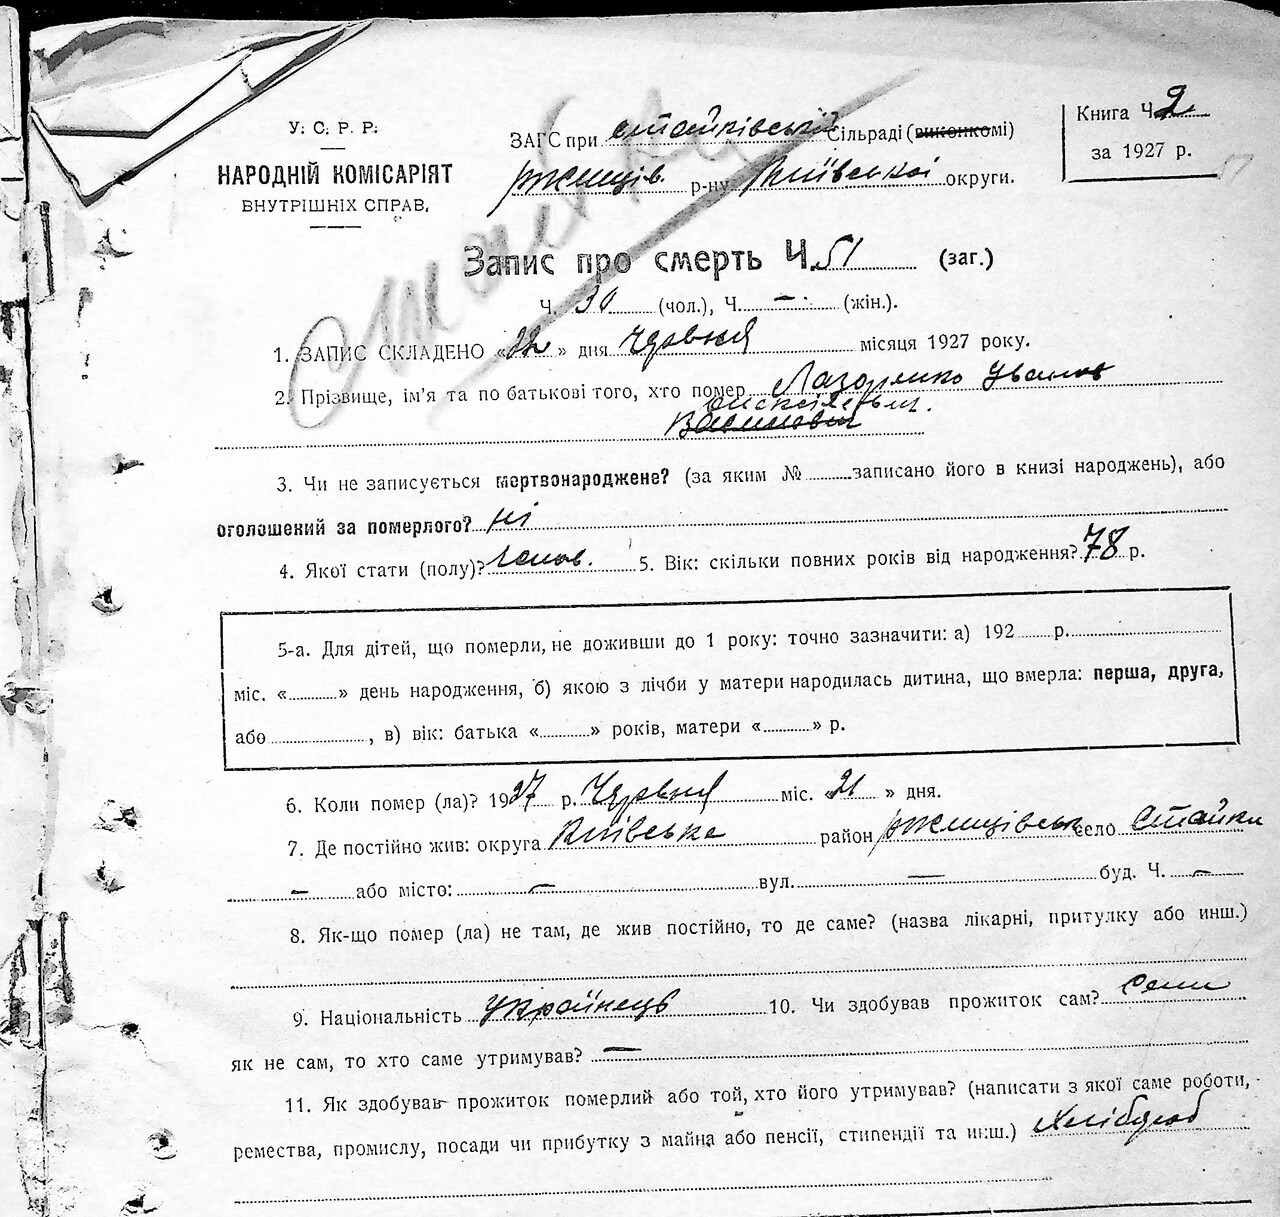 У. С. Р. Р.
НАРОДНІЙ КОМІСАРІЯТ
ВНУТРІШНІХ СПРАВ.
ЗАГС при Стайківській Сільраді (виконкомі)
Ржищів. р-ну Київської округи.
Книга Ч. 2.
за 1927 р.
Стайки
Запис про смерть Ч. 51 (заг.)
Ч. 30 (чол.), Ч. — (жін.).
1. ЗАПИС СКЛАДЕНО «22» дня Червня місяця 1927 року.
2. Прізвище, ім'я та по батькові того, хто помер Лазоренко Іванов
3. Чи не записується мертвонароджене? (за яким № записано його в книзі народжень), або
оголошений за померлого? ні
4. Якої стати (полу)? чолов. 5. Вік: скільки повних років від народження? 78 р.
5-а. Для дітей, що померли, не доживши до 1 року: точно зазначити: а) 192 р.
міс. « » день народження, б) якою з лічби у матери народилась дитина, що вмерла: перша, друга,
або , в) вік: батька « » років, матери « » р.
6. Коли помер (ла)? 1927 р. Червня міс. «21» дня.
7. Де постійно жив: округа Київська район Ржищівськ село Стайки
— або місто: — вул. — буд. Ч. —
8. Як-що помер (ла) не там, де жив постійно, то де саме? (назва лікарні, притулку або инш.)
9. Національність Українець 10. Чи здобував прожиток сам? Сам
як не сам, то хто саме утримував? —
11. Як здобував прожиток померлий або той, хто його утримував? (написати з якої саме роботи,
ремества, промислу, посади чи прибутку з майна або пенсії, стипендії та инш.) Хлібороб